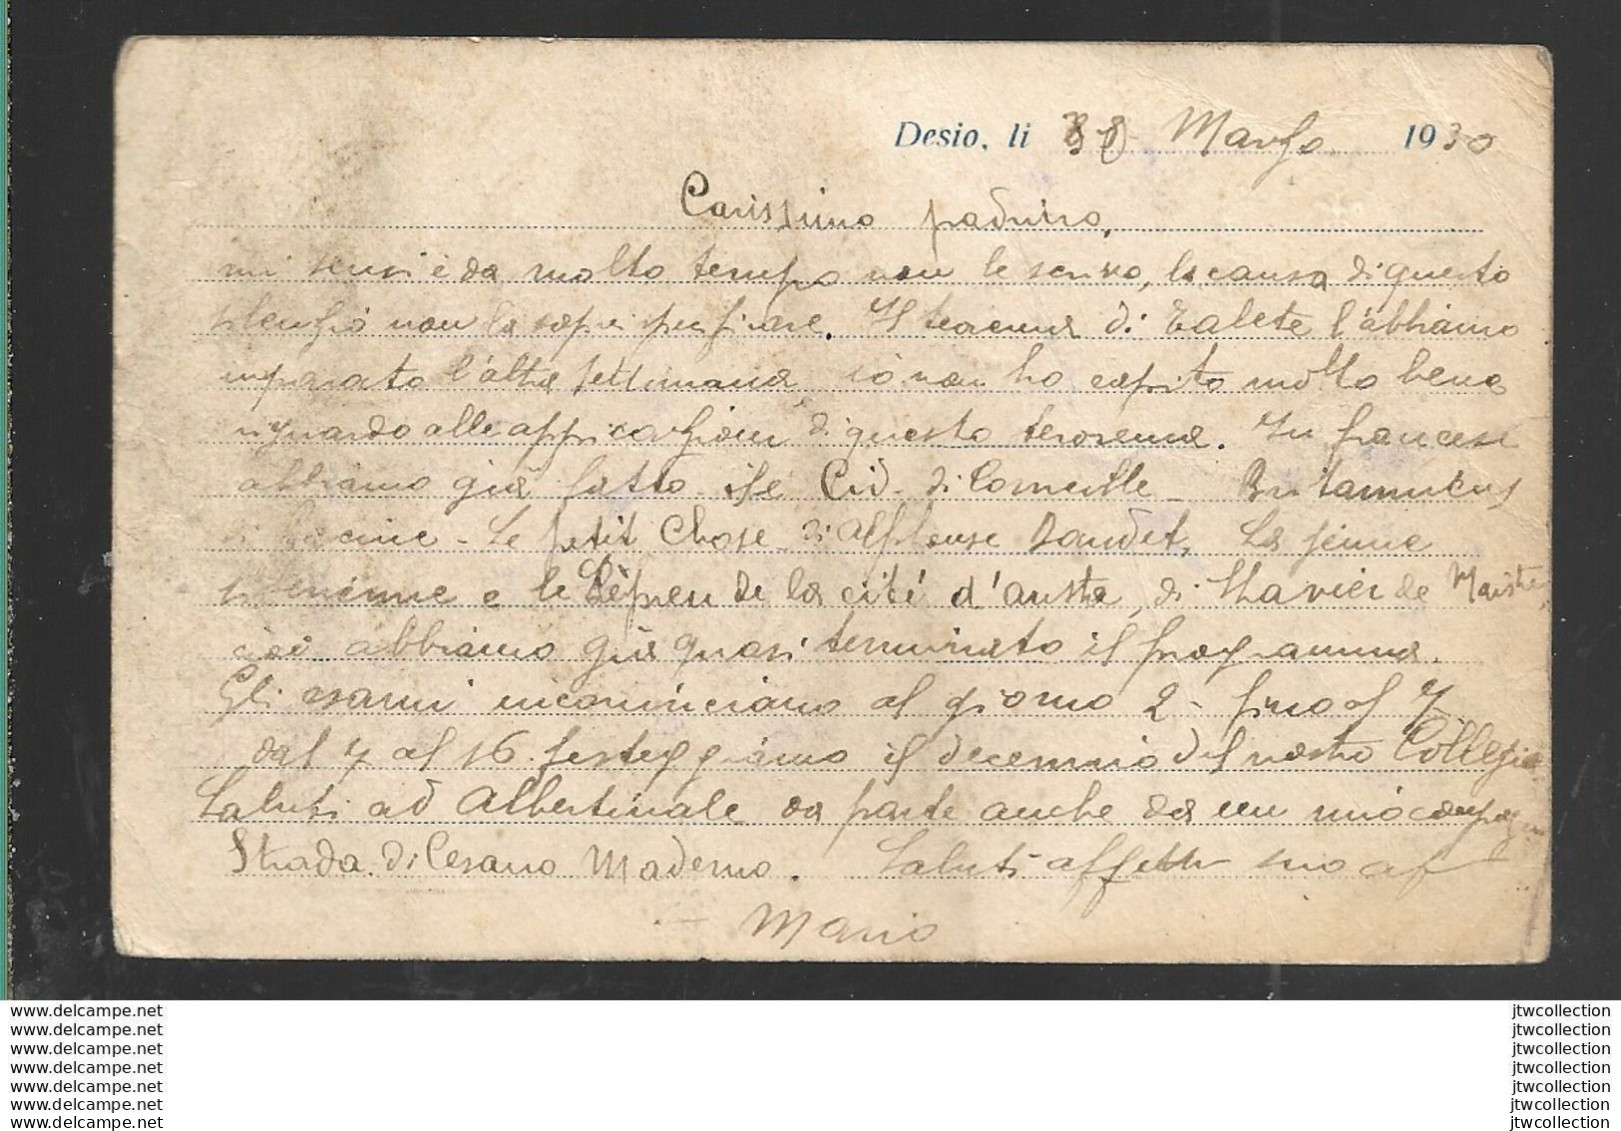 Desio, li Marzo 1930
Carissimo padrino,
mi scusi è da molto tempo non le scrivo, la causa di questo
silenzio non la saprei spiegare. Il teorema di Talete l'abbiamo
imparato l'altra settimana io non ho capito molto bene
riguardo alle appricazioni di questo teorema. In francese
abbiamo già fatto Cid di Corneille - Britannicus
di Racine - Le petit Chose di Alfhonse Daudet, La jeune
siberienne e le Lépreu de la cité d'auste, di Xhavier de Maistre,
cioè abbiamo già quasi terminato il programma.
Gli esami incominciano al giorno 2 - fino al 7
dal 7 al 16 festeggiamo il decennio del nostro Collegio
Saluti ad Albertinale da parte anche da un mio compagno
Strada di Cesano Maderno. Saluti affetti suo af
Mario
www.delcampe.net
www.delcampe.net
www.delcampe.net
www.delcampe.net
www.delcampe.net
www.delcampe.net
www.delcampe.net
jtwcollection
jtwcollection
jtwcollection
jtwcollection
jtwcollection
jtwcollection
jtwcollection